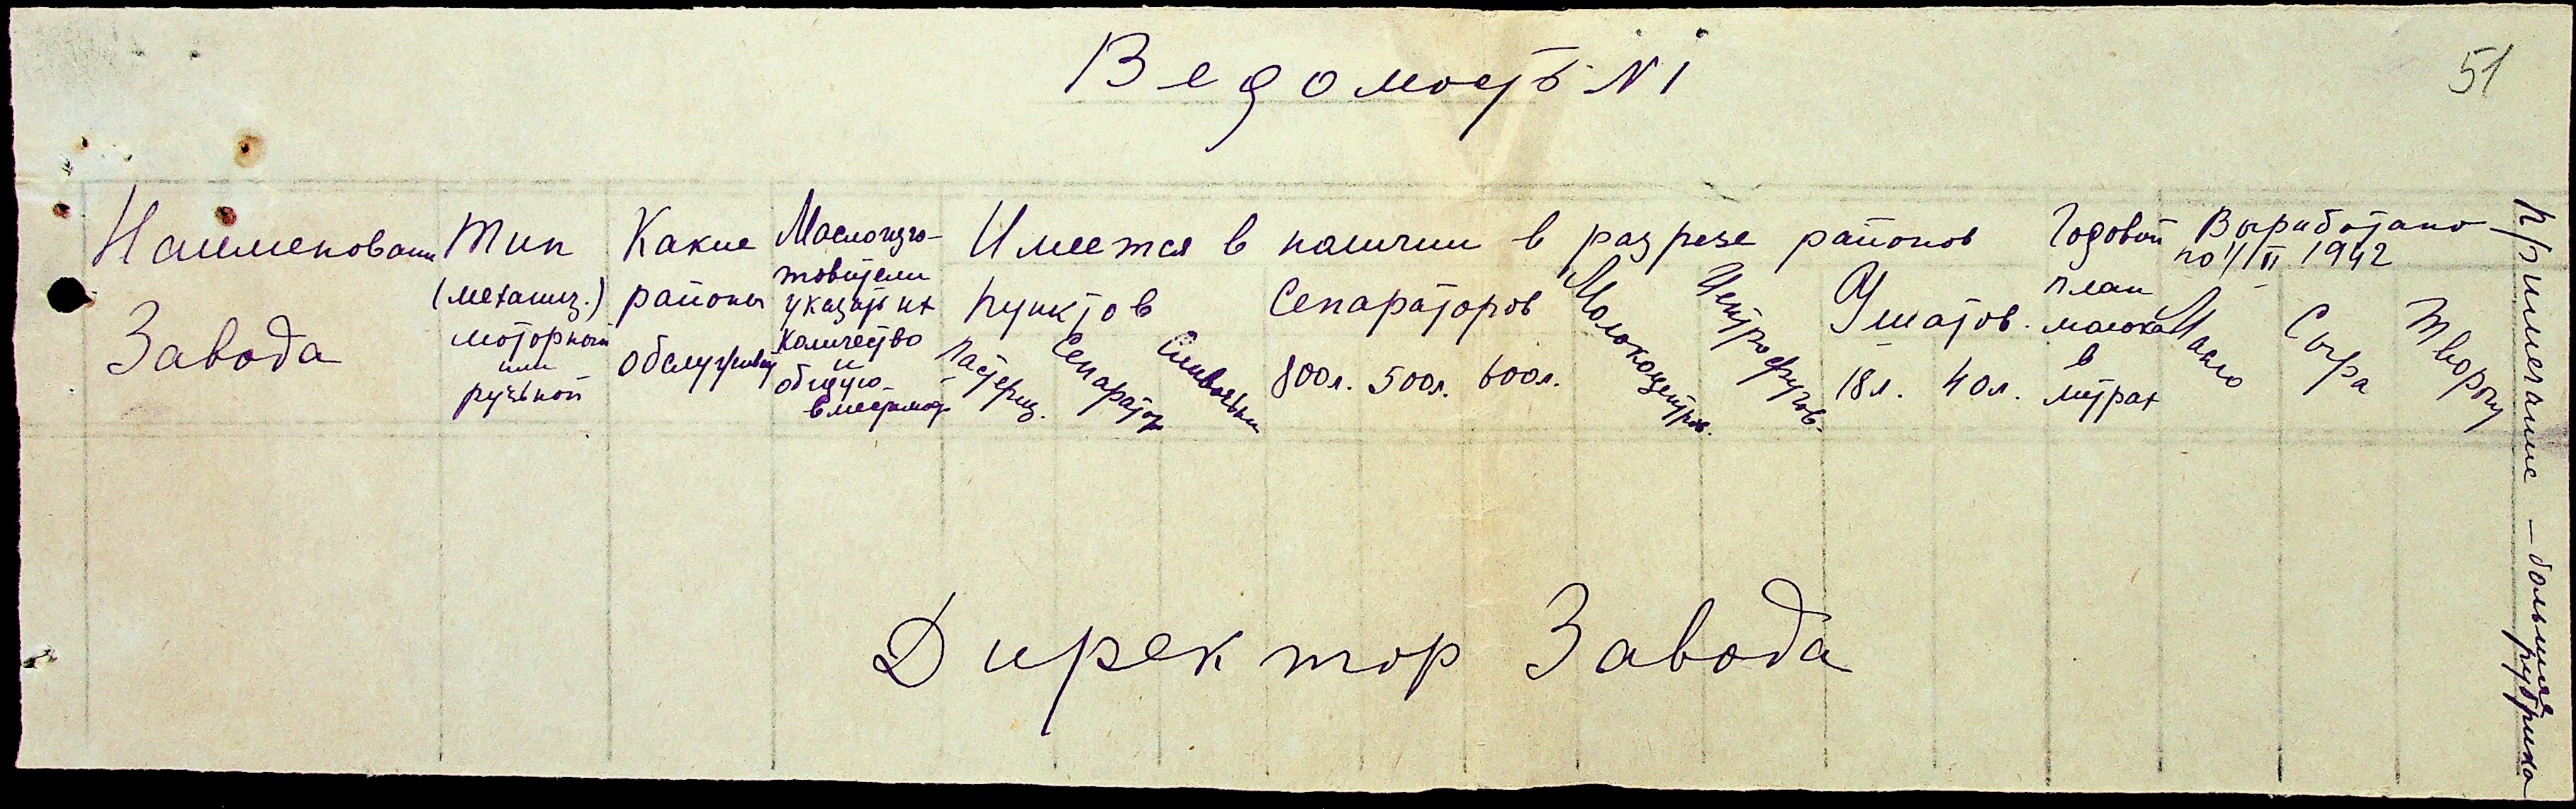 Ведомость N 1
51
Наименовани
Завода
Тип
(механиз.)
моторный
или
ручьной
Какие
районы
обслужива
Маслоизго-
товители
указать их
количество
и
общую
вместимос
Имеется в наличии в разрезе районов
Пунктов
Пастериз.
Сепаратор
Сливочьны
Сепараторов
800л. 500л. 600л.
Молокоцентров.
Центрофугов.
Ушатов.
18л. 40л.
Годовой
план
молока
в
литрах
Выработано
по 1/II 1942
Масло
Сыра
Творогу
Примечание – большия
рубрика
Директор Завода